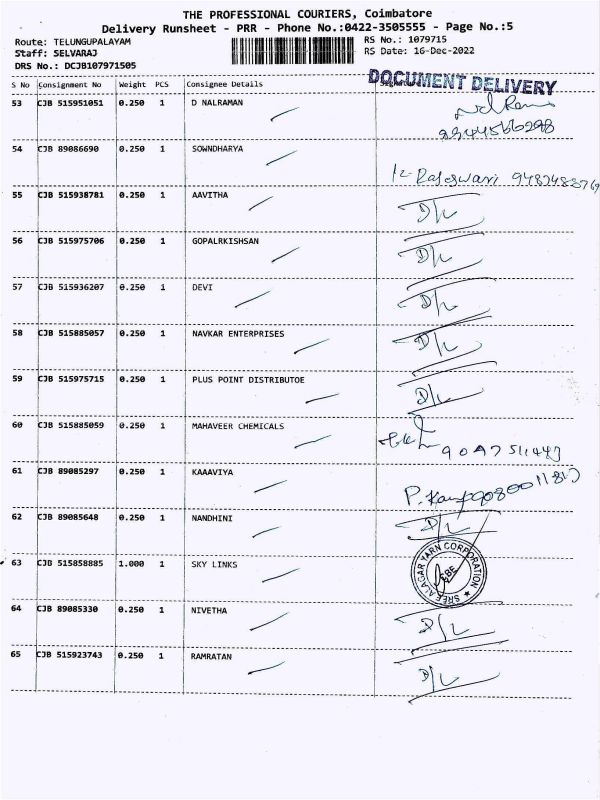 THE PROFESSIONAL COURIERS, Coimbatore
Delivery Runsheet - PRR - Phone No.:0422-3505555 - Page No.:5
Route: TELUNGUPALAYAM RS No.: 1079715
Staff: SELVARAJ RS Date: 16-Dec-2022
DRS No.: DCJB107971505
DOCUMENT DELIVERY
S No Consignment No Weight PCS Consignee Details
53 CJB 515951051 0.250 1 D NALRAMAN
54 CJB 89086690 0.250 1 SOWNDHARYA
K Rajeswari
55 CJB 515938781 0.250 1 AAVITHA D/L
56 CJB 515975706 0.250 1 GOPALRKISHSAN D/L
57 CJB 515936207 0.250 1 DEVI D/L
58 CJB 515885057 0.250 1 NAVKAR ENTERPRISES D/L
59 CJB 515975715 0.250 1 PLUS POINT DISTRIBUTOE D/L
60 CJB 515885059 0.250 1 MAHAVEER CHEMICALS
61 CJB 89085297 0.250 1 KAAAVIYA
62 CJB 89085648 0.250 1 NANDHINI D/L
63 CJB 515858885 1.000 1 SKY LINKS
SREE ALAGAR YARN CORPORATION
CBE
64 CJB 89085330 0.250 1 NIVETHA D/L
65 CJB 515923743 0.250 1 RAMRATAN D/L